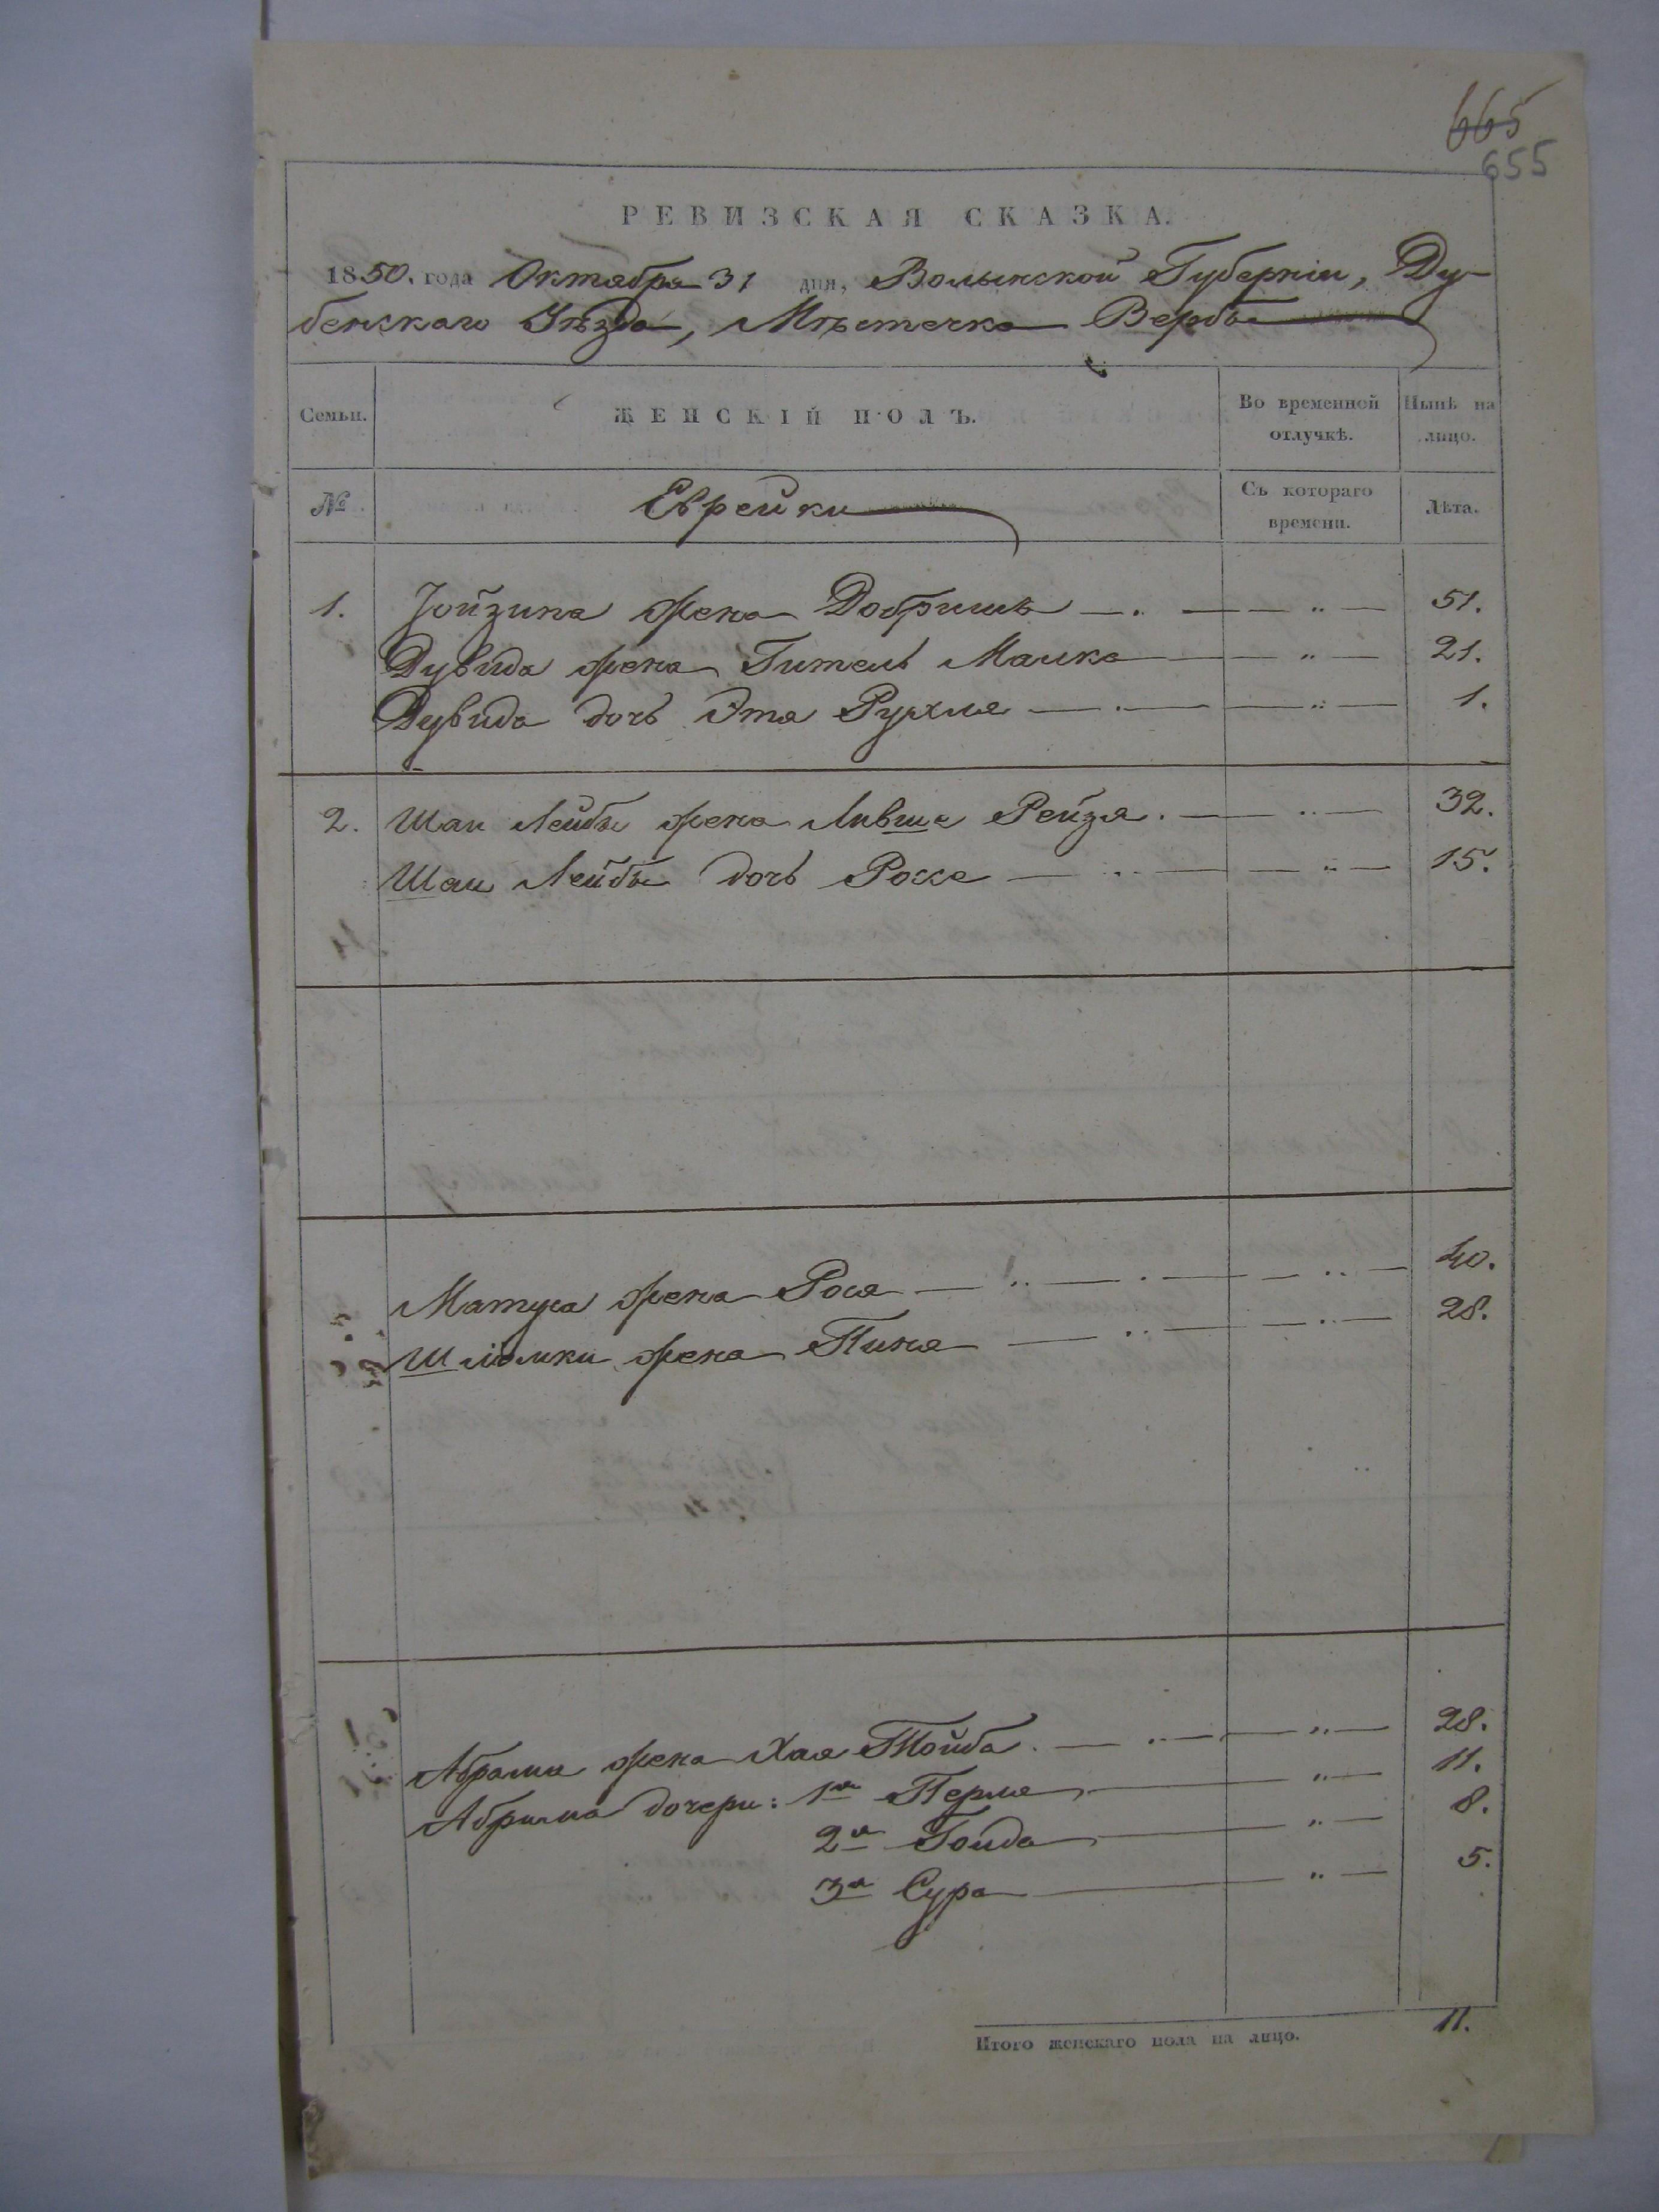 665
655
РЕВИЗСКАЯ СКАЗКА.
1850. года Октября 31 дня, Волынской Губерніи, Ду-
бенскаго Уѣзда, Мѣстечка Верба
Семьи. ЖЕНСКІЙ ПОЛЪ. Во временной отлучкѣ. Нынѣ на лицо.
№ Еврейки Съ котораго времени. Лѣта.
1. Іойзипа жена Добришъ 51.
Дувида жена Гитель Малка 21.
Дувида дочь Эта Рухля 1.
2. Шаи Лейбы жена Ливша Рейзя 32.
Шаи Лейбы дочь Росся 15.
Матуса жена Рося 40.
Шліомки жена Пиня 28.
Абрама жена Хая Тойба 28.
Абрама дочери: 1я Перля 11.
2я Гольда 8.
3я Сура 5.
Итого женскаго пола на лицо. 11.